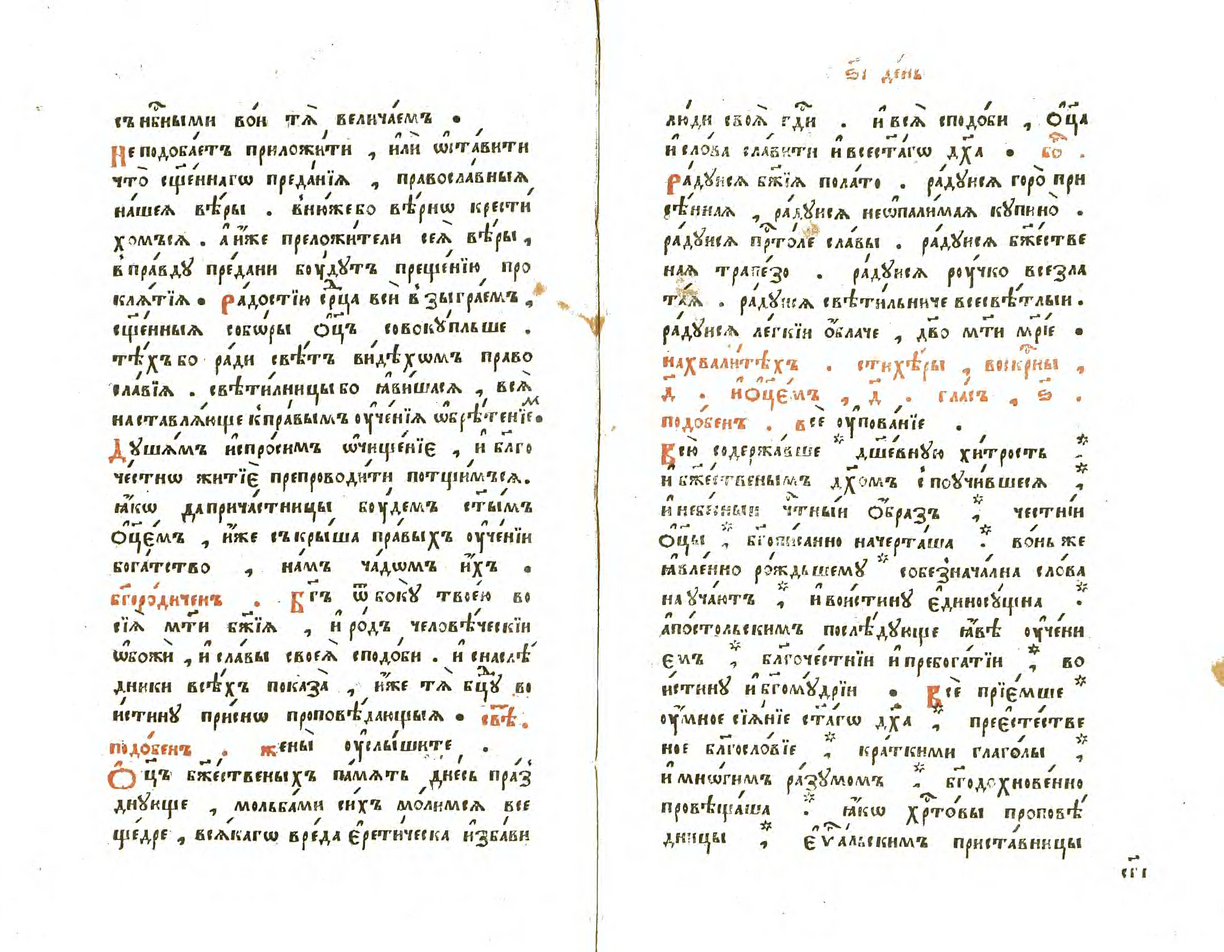 съ нб҃ными вои тѧ̀ велича́емъ .
Не подоба́етъ приложи́ти , илѝ ѡ҆ста́вити
что̀ сщ҃е́ннагѡ преда́нїѧ , правосла́вныѧ
на́шеѧ вѣ́ры . в̾ню́же бо вѣ́рнѡ крести́
хомъсѧ . А҆ и҆́же преложи́тели сеѧ̀ вѣ́ры ,
в̾пра́вду пре́дани бꙋ́дутъ преще́нїю про
клѧ́тїѧ . Ра́достїю срⷣца всѝ в̾зыгра́емъ ,
сщ҃е́нныѧ собѡ́ры Ѻ҆ц҃ъ совокꙋ́пльше .
тѣ́хъ бо ра́ди свѣ́тъ ви́дѣхѡмъ право
сла́вїѧ . свѣти́лницы бо ꙗ҆ви́шасѧ , всѧ̀
наставлѧ́юще к̾пра́вымъ ᲂу҆че́нїѧ ѡ҆брѣ́тенїеⷨ.
Дꙋша́мъ и҆спро́симъ ѡ҆чище́нїе , и҆ благо
че́стнѡ житїѐ препроводи́ти потщи́мъсѧ.
ꙗ҆́кѡ да прича́стницы бꙋ́демъ ст҃ы́мъ
Ѻ҆ц҃є́мъ , и҆́же съкры́ша пра́выхъ ᲂу҆че́нїи
бога́тство , на́мъ ча́дѡмъ и҆́хъ .
бг҃оро́диченъ . Бг҃ъ ѿ бо́кꙋ твоею̀ во
сїѧ̀ мт҃и бж҃їѧ , и҆ ро́дъ человѣ́ческїи
ѡ҆божѝ , и҆ сла́вы своеѧ̀ сподо́би . и҆ снаслѣ́
дники всѣ́хъ показа̀ , и҆́же тѧ̀ бцⷣꙋ во
и҆́стинꙋ при́снѡ проповѣ́дающыѧ . свѣ́.
подо́бенъ . жены̀ ᲂу҆слы́шите .
Ѻ҆ц҃ъ бж҃е́ственыхъ па́мѧть дне́сь пра́з
днꙋюще , мольба́ми си́хъ мо́лимсѧ все
ще́дре , всѧ́кагѡ вре́да є҆рети́ческа и҆зба́ви
ѕ҃і де́нь
лю́ди своѧ̀ гдⷭ҇и . и҆ всѧ̀ сподо́би , Ѻ҆ц҃а
и҆ сло́ва сла́вити и҆ всест҃а́гѡ дх҃а . бо҃ .
Ра́дꙋисѧ бж҃їѧ пола́то . ра́дꙋисѧ горо̀ при
сѣ́нная , ра́дꙋисѧ неѡ҆пали́мая кꙋпино̀ .
ра́дꙋисѧ прⷭ҇то́ле сла́вы . ра́дꙋисѧ бж҃е́стве
ная трапе́зо . ра́дꙋисѧ рꙋ́чко всезла
та́ѧ . ра́дꙋисѧ свѣти́льниче всесвѣ́тлыи .
ра́дꙋисѧ ле́гкїи ѻ҆́блаче , дв҃о мт҃и мр҃і́е .
на хвали́тѣхъ . стихѣ́ры , воскрⷭ҇ны ,
д҃ . и҆ Ѻ҆ц҃є́мъ , д҃ . гла́съ , ѕ҃ .
подо́бенъ . всѐ ᲂу҆пова́нїе .
Всю̀ содержа́вше * дш҃е́вную хи́трость *
и҆ бж҃е́ственымъ дх҃омъ споꙋчи́вшеся *,
и҆ небе́сныи чⷭ҇тныи О҆́бразъ *, че́стнїи
Ѻ҆ц҃ы *, бг҃опи́санно начерта́ша *. во́нь же
ꙗ҆вле́нно ро́ждьшемꙋ * собезнача́лна сло́ва
наꙋча́ютъ *, и҆ вои́стинꙋ є҆диносꙋ́щна .
а҆по́стольскимъ послѣ́дꙋюще ꙗ҆́вѣ ᲂу҆че́ни
ємъ *, благоче́стнїи и҆ пребога́тїи *, во
и҆́стинꙋ и҆ бг҃омꙋ́дрїи . Всѐ прїе́мше *
ᲂу҆́мное сїѧ́нїе ст҃а́гѡ дх҃а *, преесте́стве
ное благосло́вїе *, кра́ткими глаго́лы *,
и҆ мнѡ́гимъ ра́зꙋмомъ *, бг҃одохнове́нно
провѣща́ша *. ꙗ҆́кѡ хрⷭ҇то́вы проповѣ́
дницы *, є҆ѵⷢ҇а́льскимъ приста́вницы
сг҃і